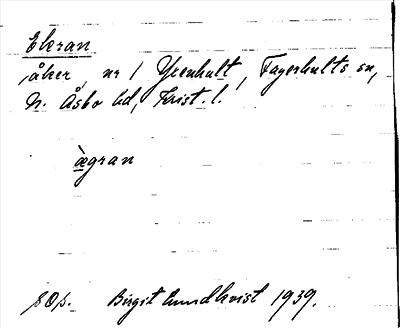 Ekran
åker, nr 1 Yxenhult, Fagerhults sn,
N. Åsbo hd, Krist. l.
ægran
Birgit Lundkvist 1939.